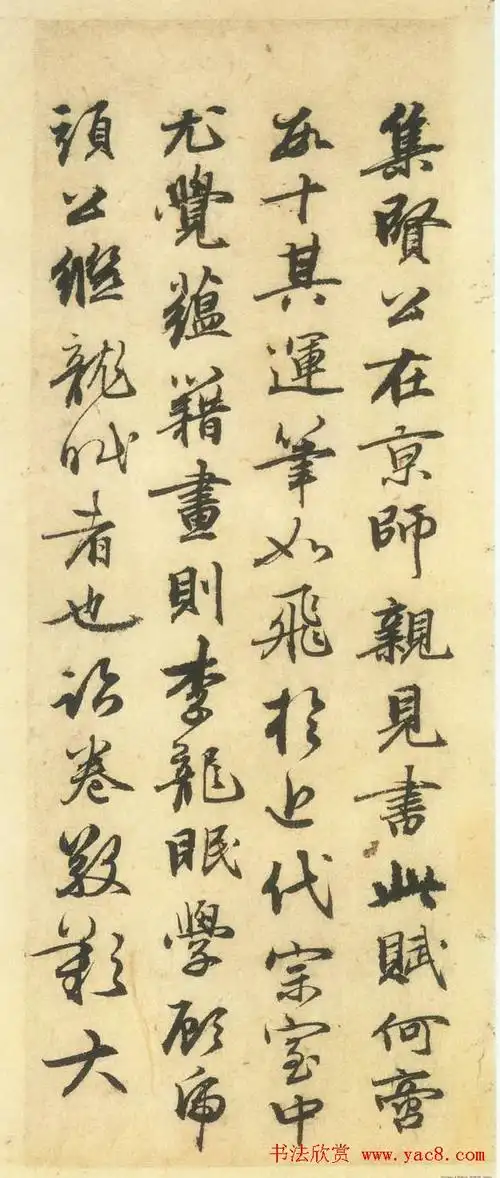 集賢公在京師親見書此賦何啻
數十其運筆如飛於近代宗室中
尤覺蘊藉畫則李龍眠學顧虎
頭公繼龍眠者也卷歎大
书法欣赏 www.yac8.com